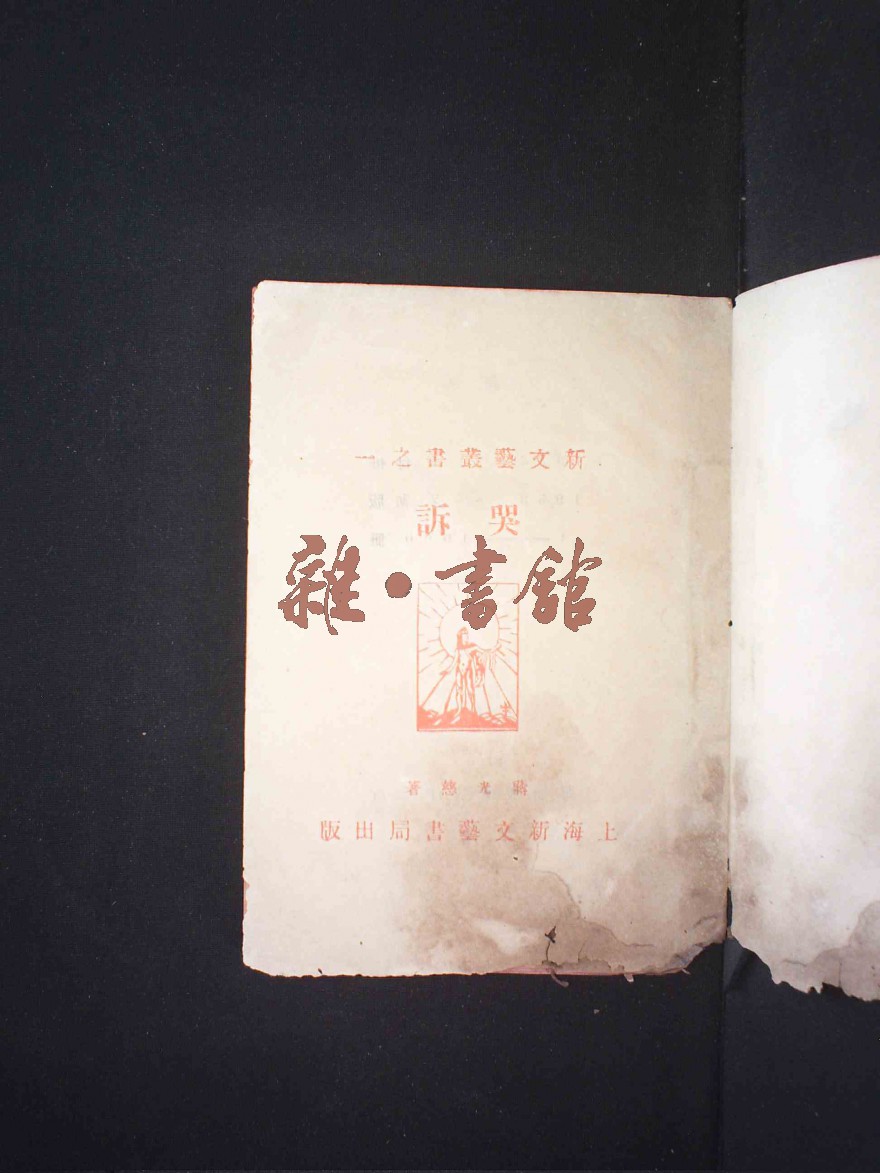 新文藝叢書之一
哭訴
雜·書舘
蔣光慈著
上海新文藝書局出版